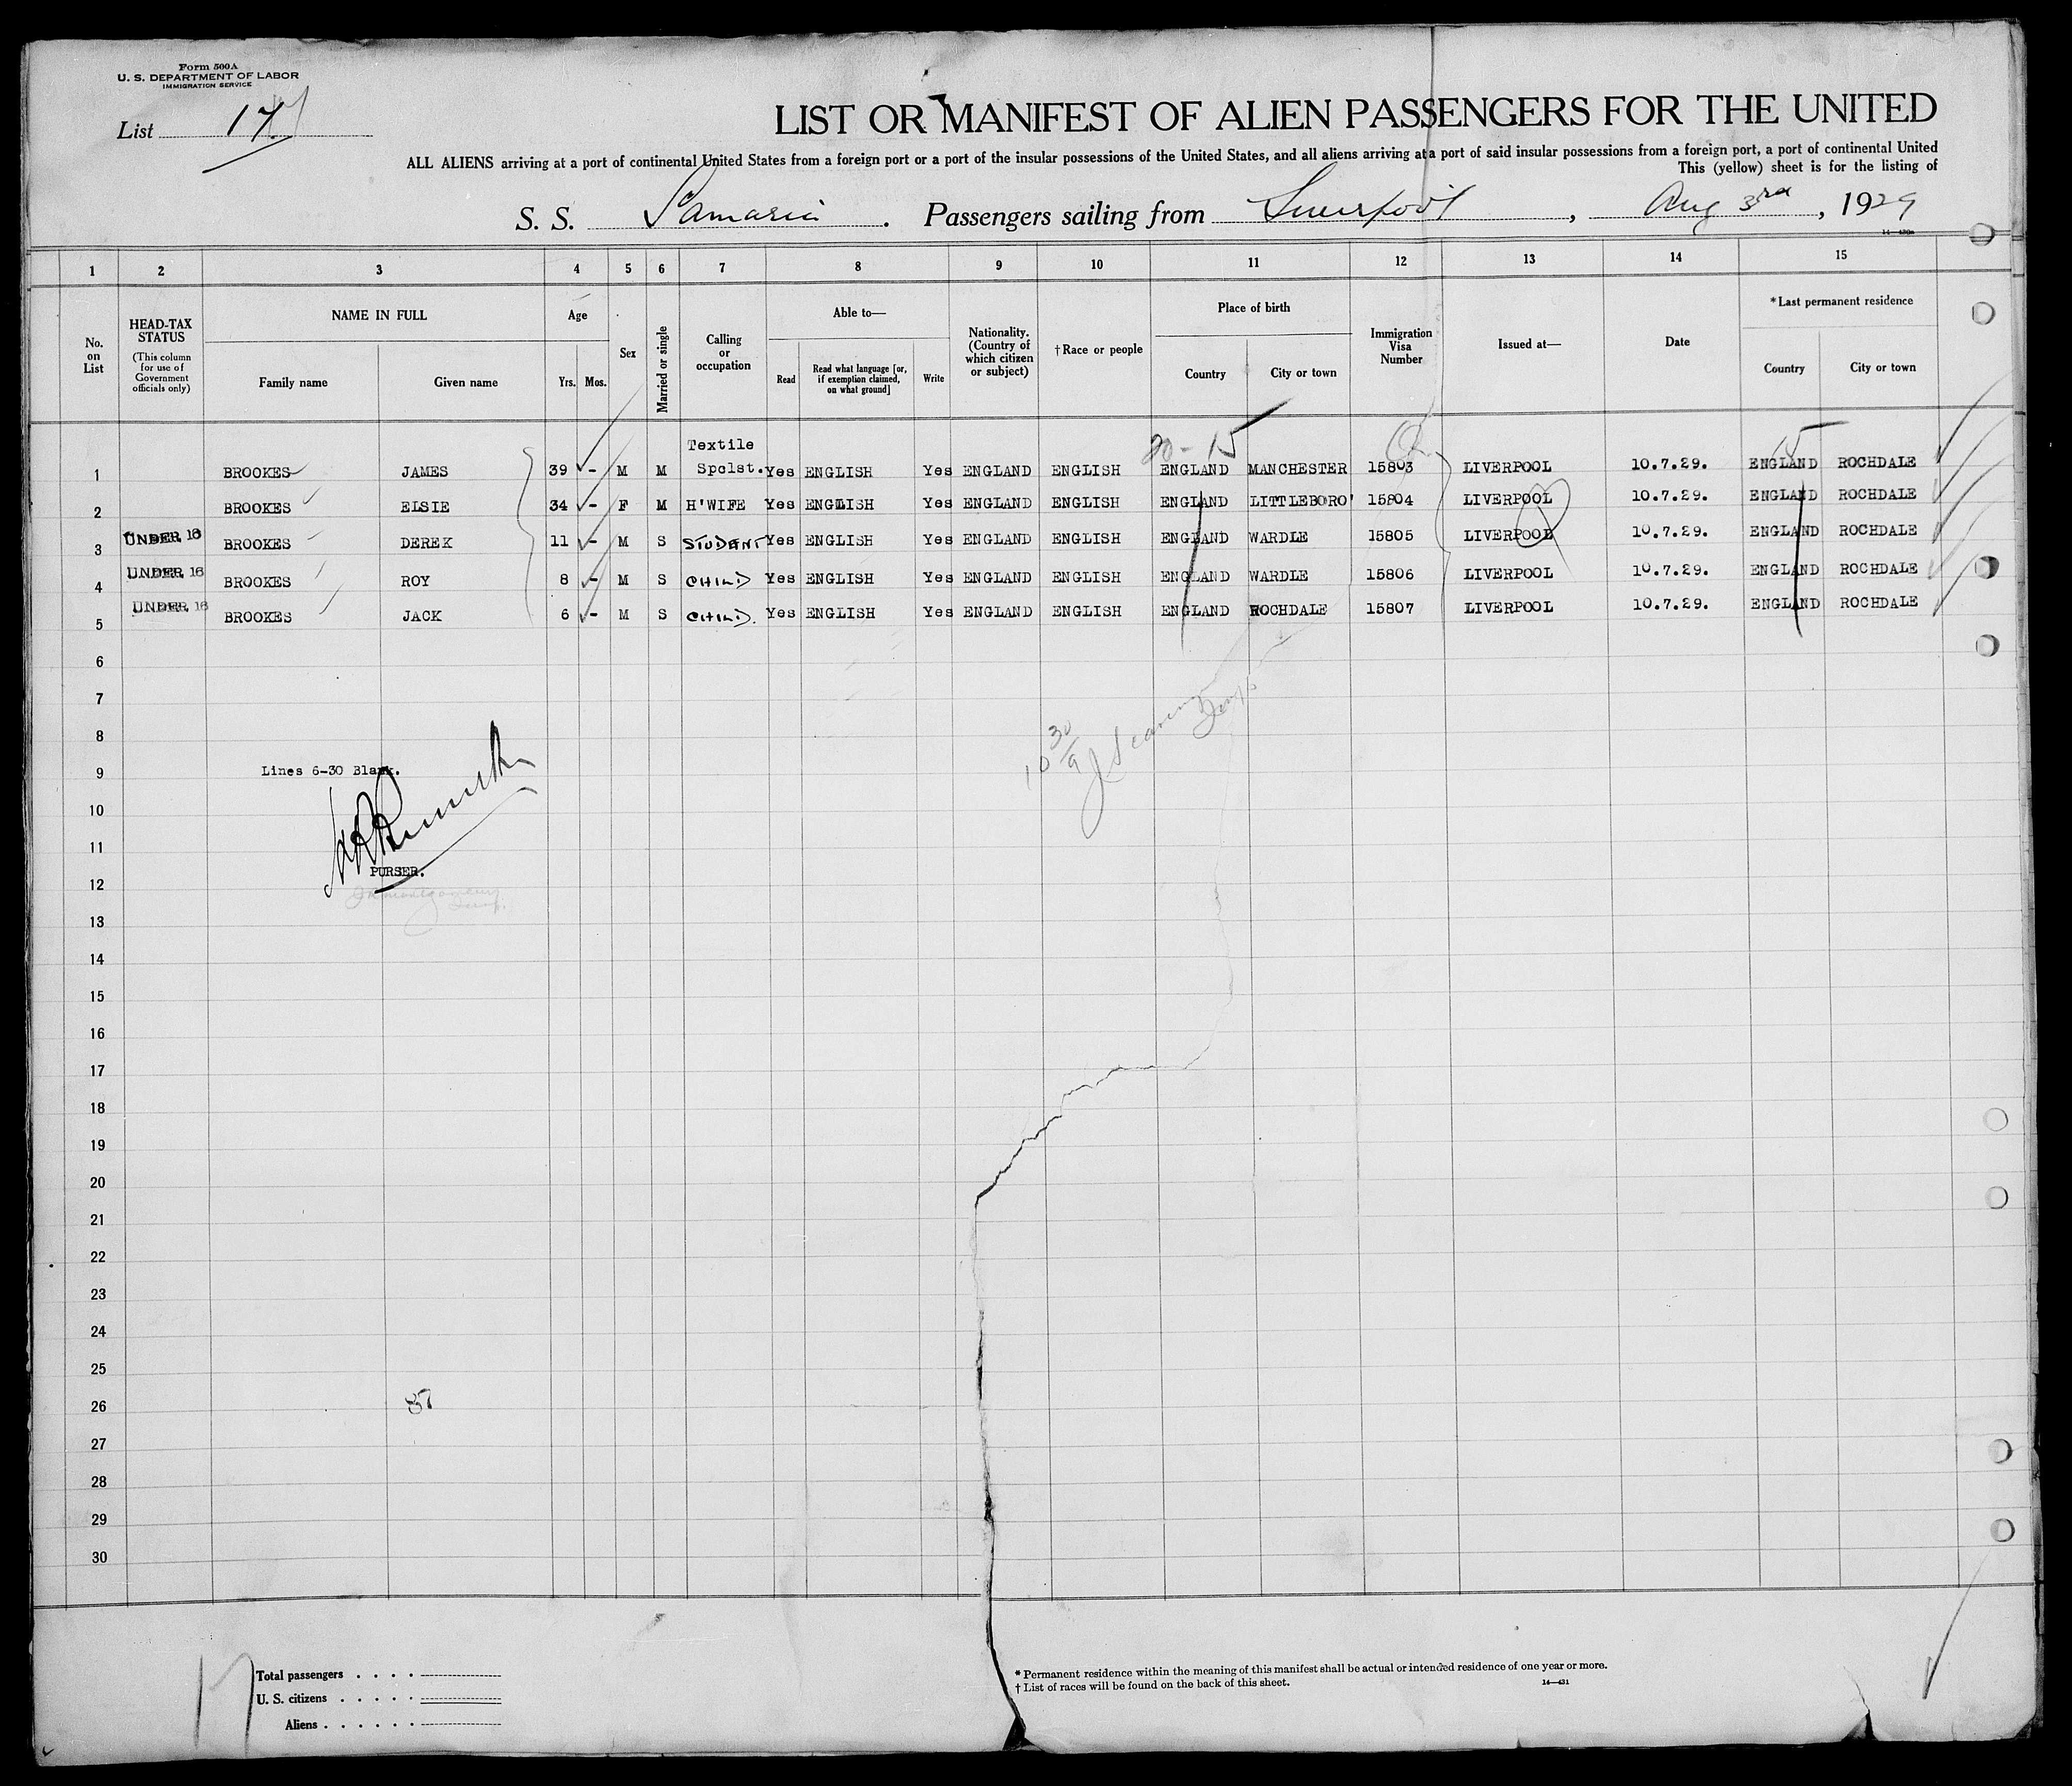 Form 500A
U. S. DEPARTMENT OF LABOR
IMMIGRATION SERVICE
List 17
LIST OR MANIFEST OF ALIEN PASSENGERS FOR THE UNITED
ALL ALIENS arriving at a port of continental United States from a foreign port or a port of the insular possessions of the United States, and all aliens arriving at a port of said insular possessions from a foreign port, a port of continental United
This (yellow) sheet is for the listing of
S. S. Samaria . Passengers sailing from Liverpool , Aug 3rd , 1929
1 2 3 4 5 6 7 8 9 10 11 12 13 14 15
No. on List
HEAD-TAX STATUS (This column for use of Government officials only)
NAME IN FULL
Family name Given name
Age
Yrs. Mos.
Sex
Married or single
Calling or occupation
Able to—
Read Read what language [or, if exemption claimed, on what ground] Write
Nationality. (Country of which citizen or subject)
†Race or people
Place of birth
Country City or town
Immigration Visa Number
Issued at—
Date
*Last permanent residence
Country City or town
20-15 15
1 BROOKES JAMES 39 - M M Textile Spclst. Yes ENGLISH Yes ENGLAND ENGLISH ENGLAND MANCHESTER 15803 LIVERPOOL 10.7.29. ENGLAND ROCHDALE
2 BROOKES ELSIE 34 - F M H'WIFE Yes ENGLISH Yes ENGLAND ENGLISH ENGLAND LITTLEBORO' 15804 LIVERPOOL 10.7.29. ENGLAND ROCHDALE
3 UNDER 16 BROOKES DEREK 11 - M S STUDENT Yes ENGLISH Yes ENGLAND ENGLISH ENGLAND WARDLE 15805 LIVERPOOL 10.7.29. ENGLAND ROCHDALE
4 UNDER 16 BROOKES ROY 8 - M S CHILD Yes ENGLISH Yes ENGLAND ENGLISH ENGLAND WARDLE 15806 LIVERPOOL 10.7.29. ENGLAND ROCHDALE
5 UNDER 16 BROOKES JACK 6 - M S CHILD. Yes ENGLISH Yes ENGLAND ENGLISH ENGLAND ROCHDALE 15807 LIVERPOOL 10.7.29. ENGLAND ROCHDALE
6
7
8
9 Lines 6-30 Blank.
10
11
PURSER.
12
13
14
15
16
17
18
19
20
21
22
23
24
25
26 87
27
28
29
30
17
Total passengers
U. S. citizens
Aliens
* Permanent residence within the meaning of this manifest shall be actual or intended residence of one year or more.
† List of races will be found on the back of this sheet.
14—431